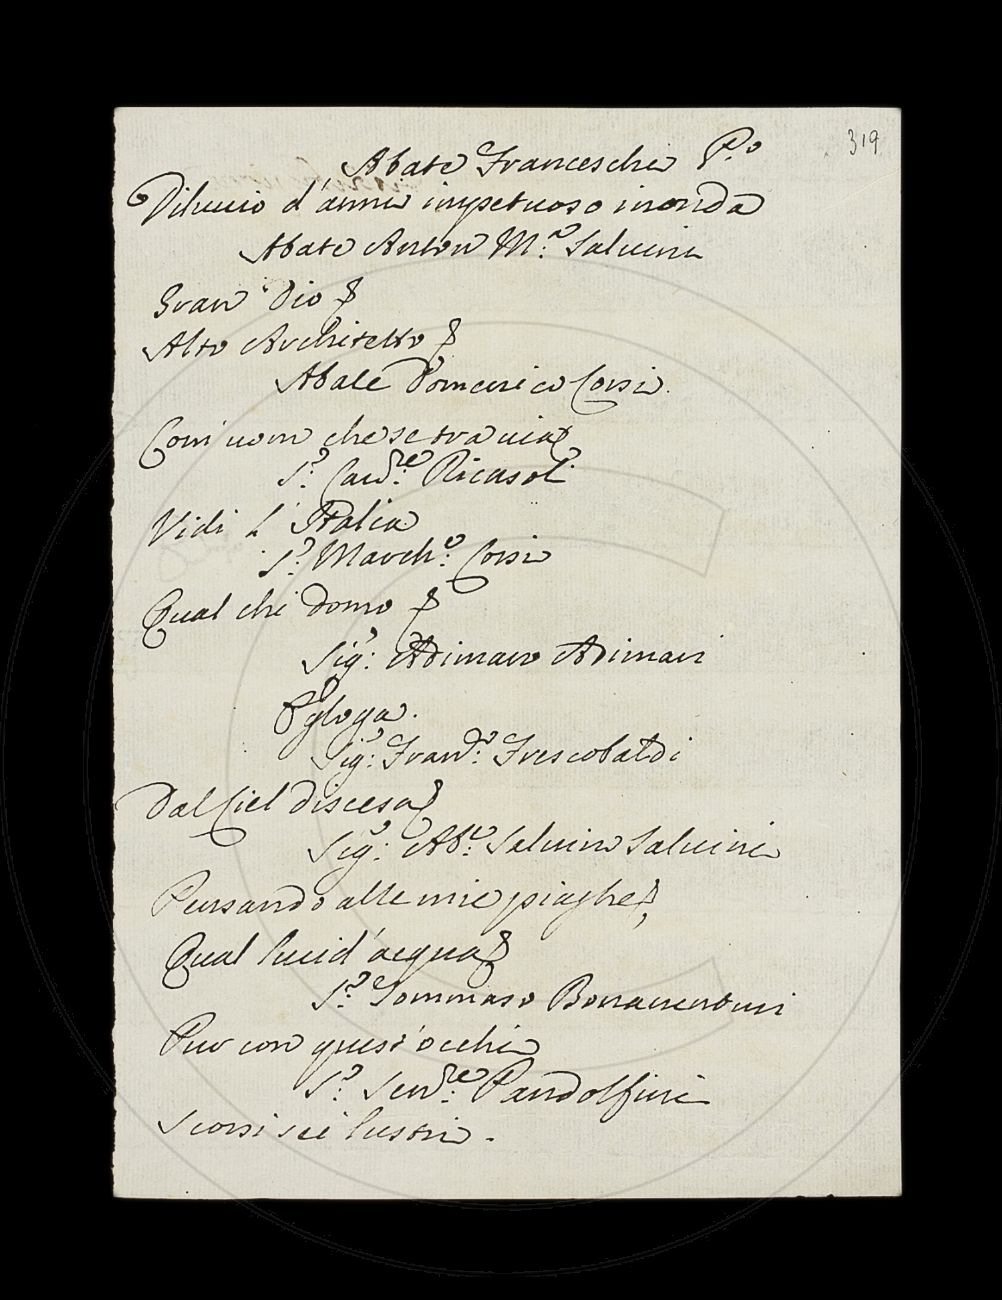 319
Abate Franceschi P.o
Diluvio d'armi impetuoso inonda
Abate Anton M.a Salvini
Gran Dio
Alto Architetto
Abate Domenico Corsi
Com' uom che se tra via
S.r Cav.re Ricasoli
Vidi l' Italia
S.r March.e Corsi
Qual chi domo
Sig.r Adimaro Adimari
Egloga.
Sig.r Fran.co Frescobaldi
Dal Ciel discesa
Sig.r Ab.e Salvino Salvini
Pensando alle mie piaghe
Qual lucid' acqua
S.r Tommaso Bonaventuri
Pur con quest' occhi
S.r Sen.re Pandolfini
Scorsi sei lustri.